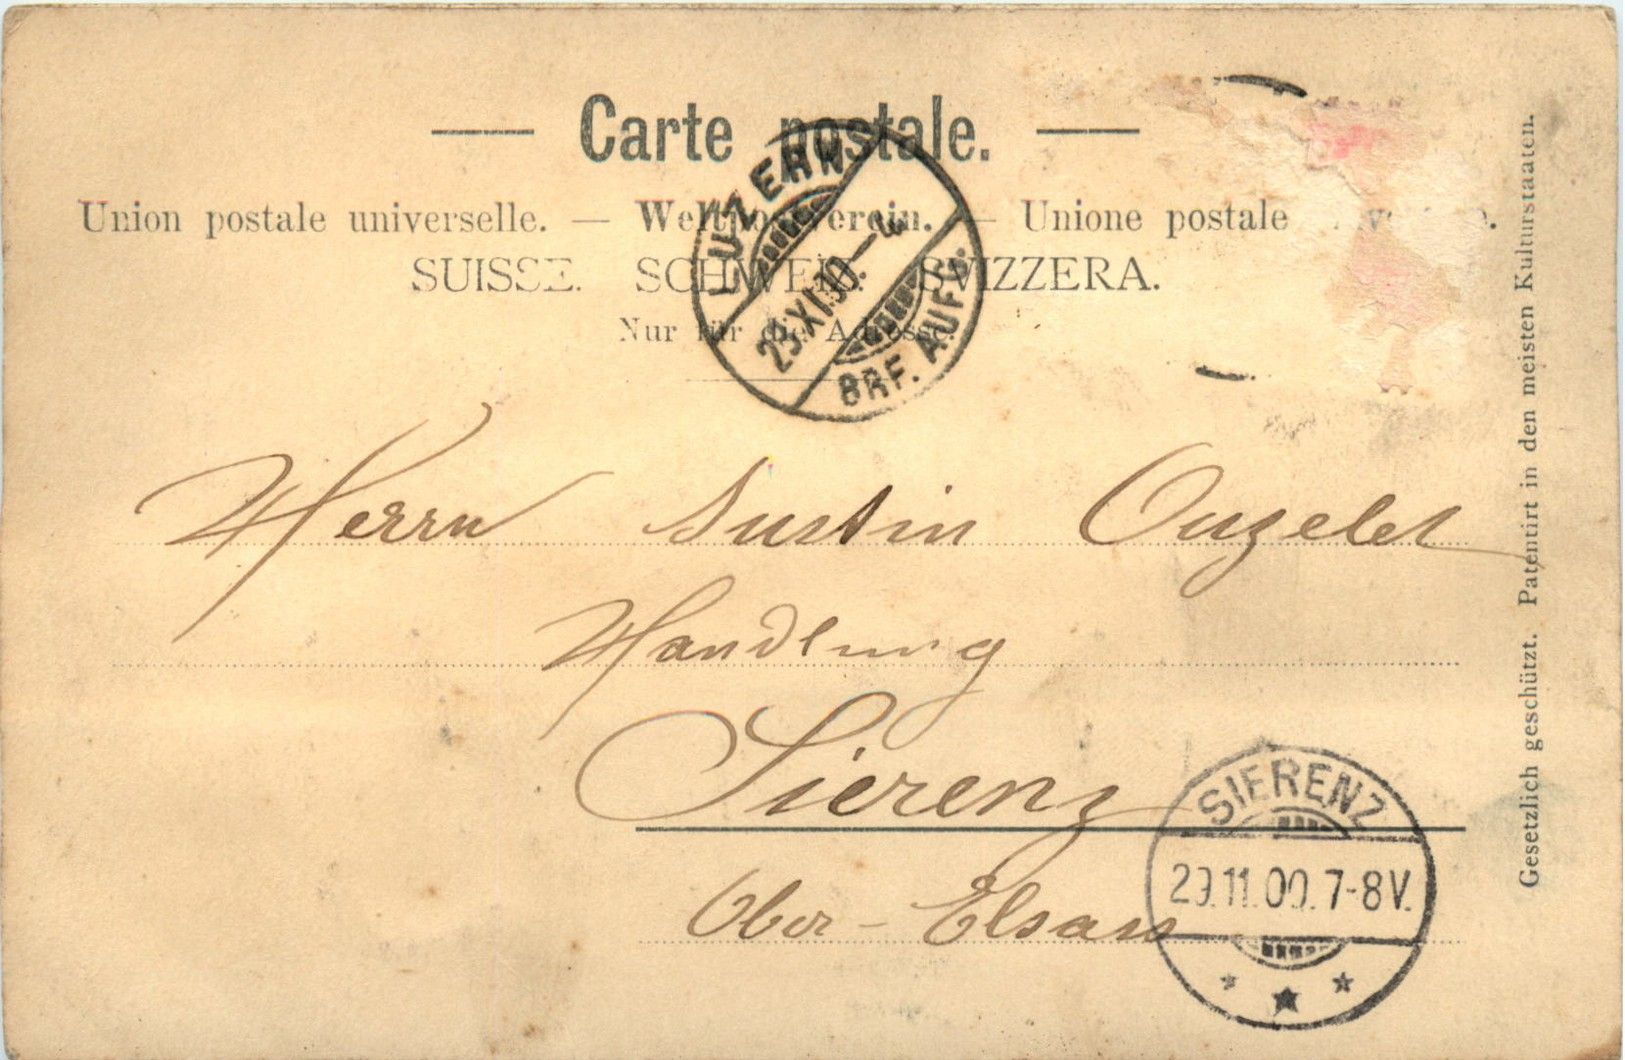 Carte postale.
Union postale universelle. — Weltpostverein. — Unione postale
SUISSE. SCHWEIZ. SVIZZERA.
Nur für die Adresse.
LUZERN
XI.00.
BRF. AUFG.
Herrn Justin Ouzelet
Handlung
Sierenz
Ober-Elsass
SIERENZ
29.11.00. 7-8V.
Gesetzlich geschützt. Patentirt in den meisten Kulturstaaten.